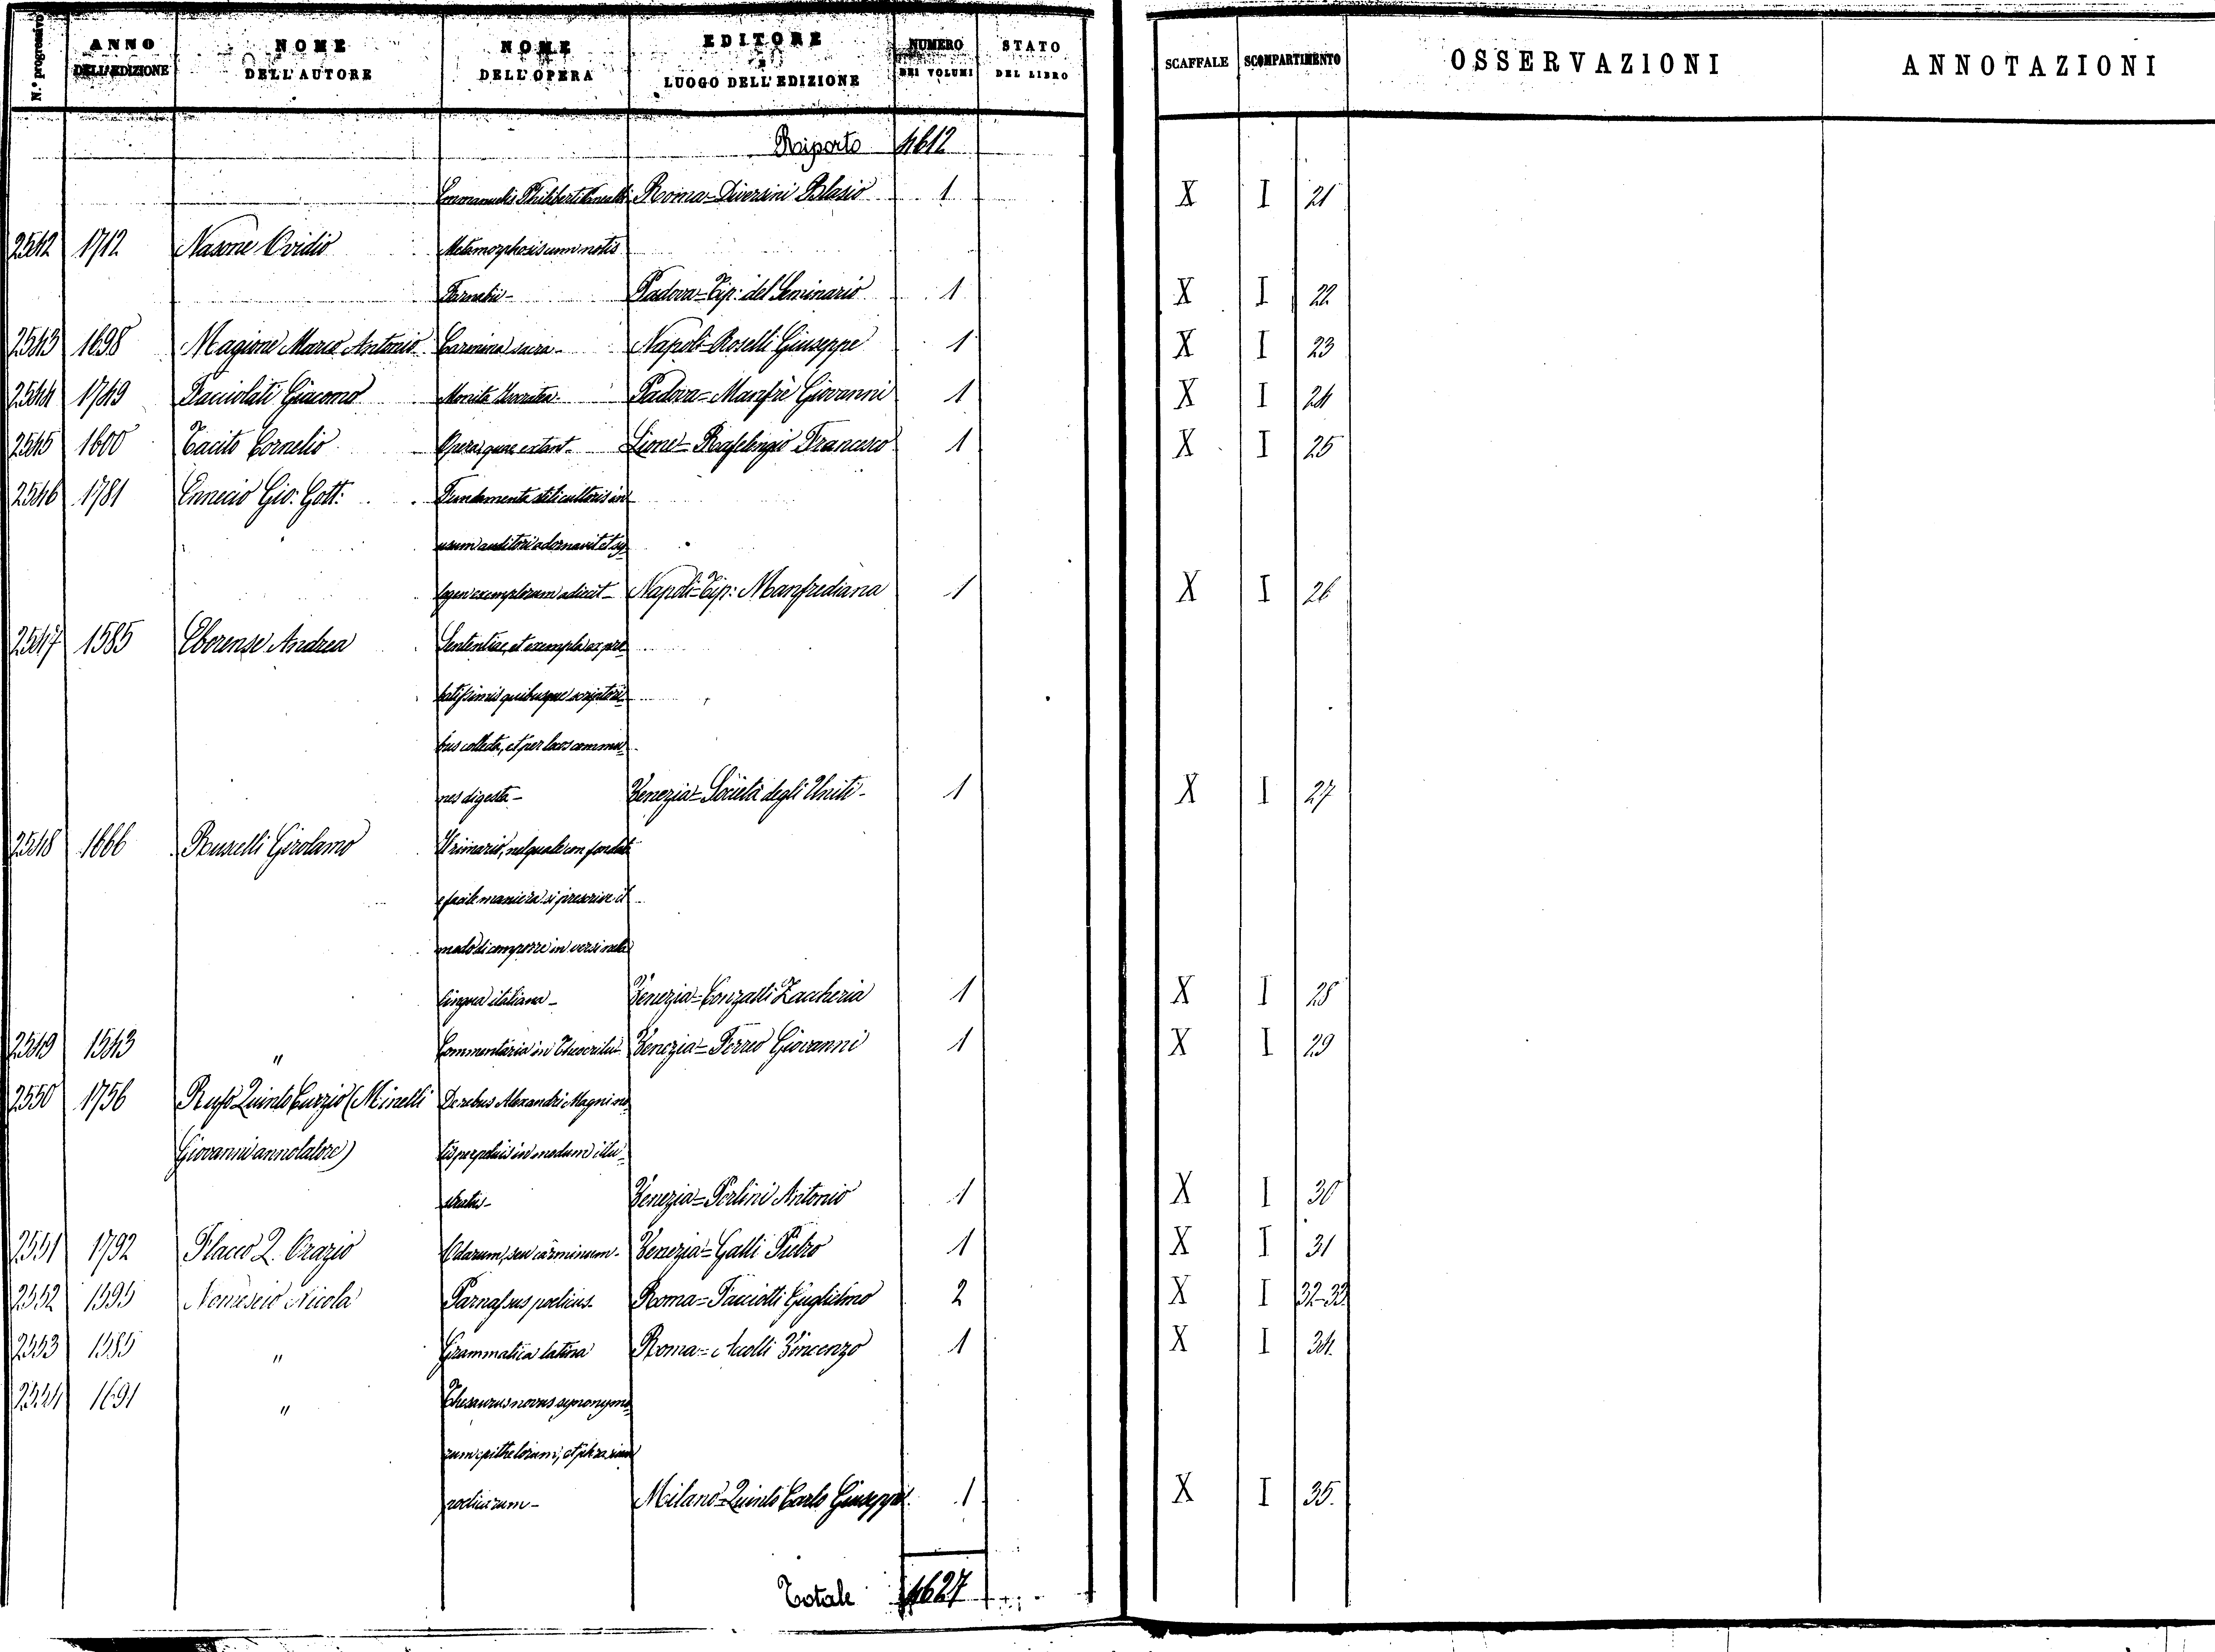 N.° progressivo | ANNO DELL'EDIZIONE | NOME DELL'AUTORE | NOME DELL'OPERA | EDITORE e LUOGO DELL'EDIZIONE | NUMERO DEI VOLUMI | STATO DEL LIBRO | SCAFFALE | SCOMPARTIMENTO | OSSERVAZIONI | ANNOTAZIONI
Riporto 4612
Emmanuelis Philiberti Roma = Diversini Blasio 1 X I 21
2542 1712 Nasone Ovidio Metamorphosis cum notis
Farnabii - Padova = Tip: del Seminario 1 X I 22
2543 1698 Magione Marco Antonio Carmina sacra - Napoli = Roselli Giuseppe 1 X I 23
2544 1749 Facciolati Giacomo Monita Isocratea - Padova = Manfrè Giovanni 1 X I 24
2545 1600 Tacito Cornelio Opera, quae extant - Lione = Rafelengio Francesco 1 X I 25
2546 1781 Ennecio Gio: Gott: Fundamenta stili cultioris in
usum auditorii adornavit et sy=
logen exemplorum adiecit - Napoli = Tip: Manfrediana 1 X I 26
2547 1585 Eborense Andrea Sententiae, et exempla ex pro=
batissimis quibusque scriptori=
bus collecta, et per locos commu=
nes digesta - Venezia = Società degli Uniti - 1 X I 27
2548 1666 Ruscelli Girolamo Il rimario, nel quale con fondata
e facile maniera si prescrive il
modo di comporre in versi nella
lingua italiana - Venezia = Conzatti Zaccheria 1 X I 28
2549 1543 " Commentaria in Theocritum Venezia = Ferreo Giovanni 1 X I 29
2550 1756 Rufo Quinto Curzio (Minelli De rebus Alexandri Magni no=
Giovanni annotatore) tis perpetuis in modum illu=
stratis - Venezia = Perlini Antonio 1 X I 30
2551 1792 Flacco Q. Orazio Odarum, seu carminum - Venezia = Galli Pietro 1 X I 31
2552 1595 Nomiseio Nicola Parnassus poeticus - Roma = Facciotti Guglielmo 2 X I 32-33
2553 1585 " Grammatica latina Roma = Accolti Vincenzo 1 X I 34.
2554 1691 " Thesaurus novus synonymo=
rum epithetorum, et phrasium
poeticarum - Milano = Quinto Carlo Giuseppe 1 X I 35.
Totale 4627